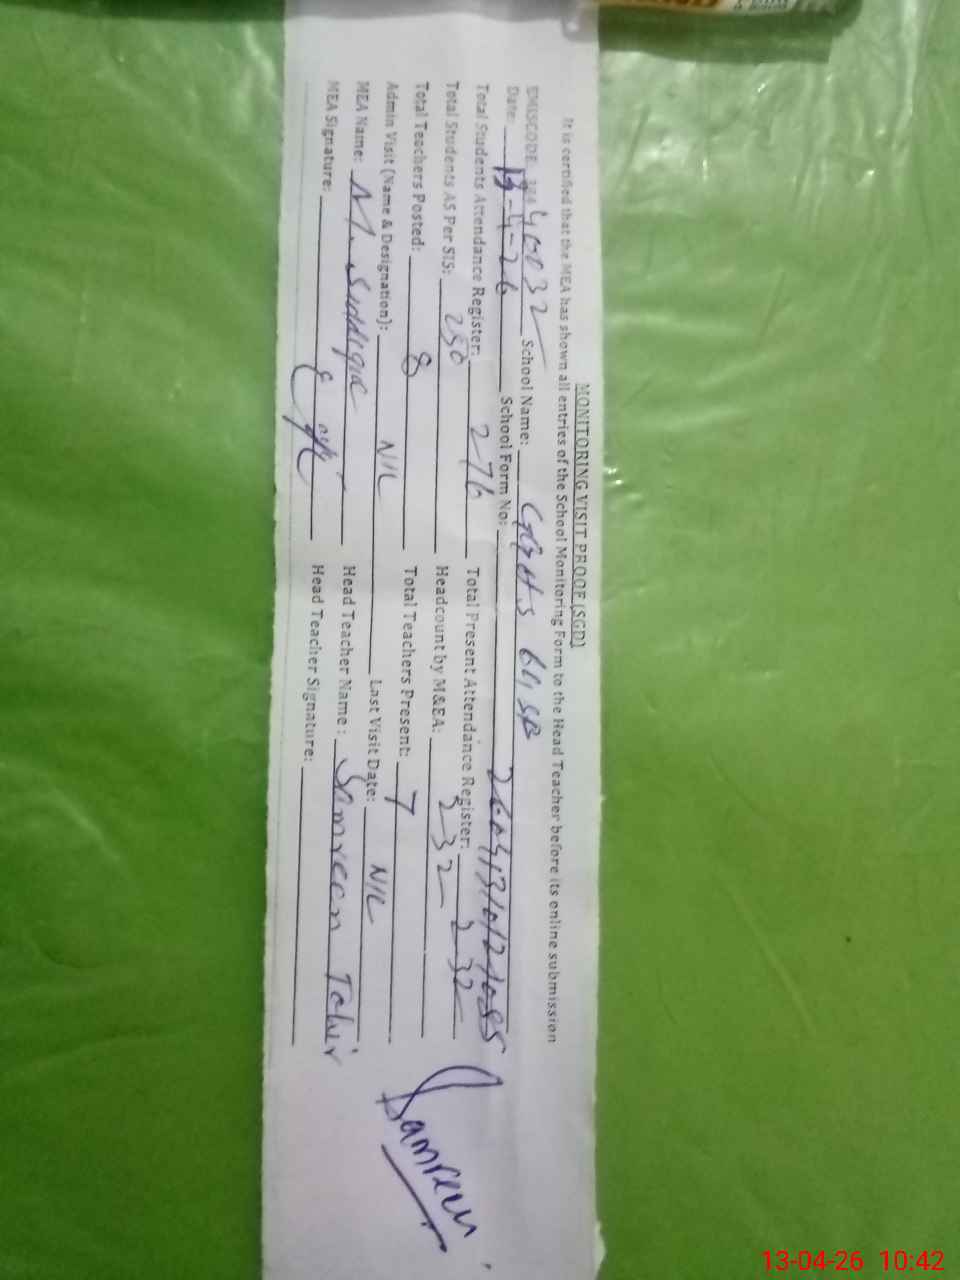 MONITORING VISIT PROOF (SGD)
It is certified that the MEA has shown all entries of the School Monitoring Form to the Head Teacher before its online submission
EMISCODE: 38440032 School Name: GGHS 64, SB
Date: 13-4-26 School Form No:
Total Students Attendance Register: 276 Total Present Attendance Register: 232
Total Students AS Per SIS: 250 Headcount by M&EA: 232
Total Teachers Posted: 8 Total Teachers Present: 7
Admin Visit (Name & Designation): NIL Last Visit Date: NIL
MEA Name: M. Siddique Head Teacher Name: Samreen Tahir
MEA Signature: Head Teacher Signature:
Samreen
13-04-26 10:42